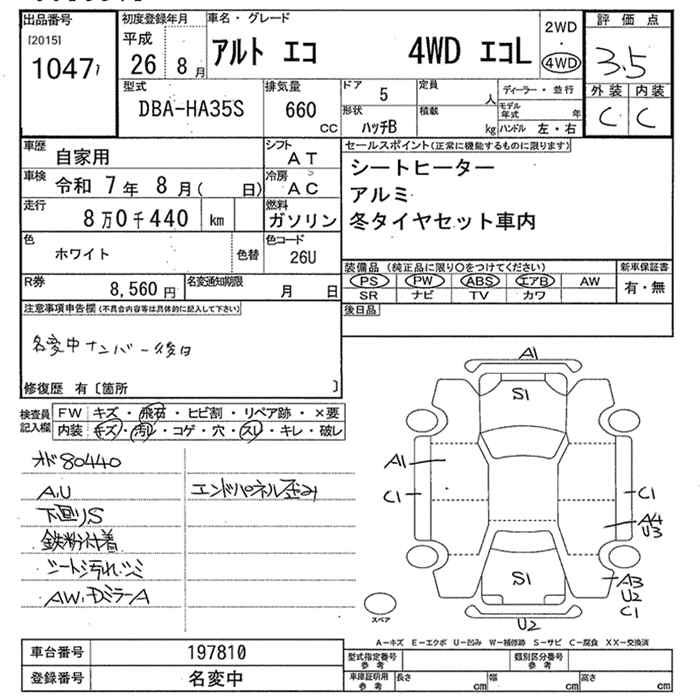 出品番号
[2015]
1047
初度登録年月
平成
26 8月
車名・グレード
アルト エコ 4WD エコL
2WD
・
4WD
評価点
3.5
外装 内装
C C
型式
DBA-HA35S
排気量
660 cc
ドア 5
形状 ハッチB
定員 人
積載 kg
ディーラー・並行
モデル年式 年
ハンドル 左・右
車歴 自家用
シフト AT
車検 令和 7年 8月( 日)
冷房 AC
走行 8万0千440 km
燃料 ガソリン
色 ホワイト 色替
色コード 26U
R券 8,560円
名変通知期限 月 日
セールスポイント(正常に機能するものに限ります)
シートヒーター
アルミ
冬タイヤセット車内
装備品(純正品に限り○をつけてください)
PS PW ABS エアB AW
SR ナビ TV カワ
新車保証書
有・無
後日品
注意事項申告欄(不具合内容等は具体的に記入して下さい)
名変中ナンバー後日
修復歴 有〔箇所 〕
検査員記入欄
FW キズ・飛石・ヒビ割・リペア跡・×要
内装 キズ・汚レ・コゲ・穴・スレ・キレ・破レ
オド80440
A.U
下回りS
鉄粉付着
シート汚れ.シミ
AW.DミラーA
エンドパネル歪み
A1
S1
A1
C1
C1
A4
U3
S1
A3
U2
C1
U2
スペア
A-キズ E-エクボ U-凹み W-補修跡 S-サビ C-腐食 XX-交換済
車台番号 197810
登録番号 名変中
型式指定番号 参考
類別区分番号 参考
車庫証明用 参考 長さ cm 幅 cm 高さ cm